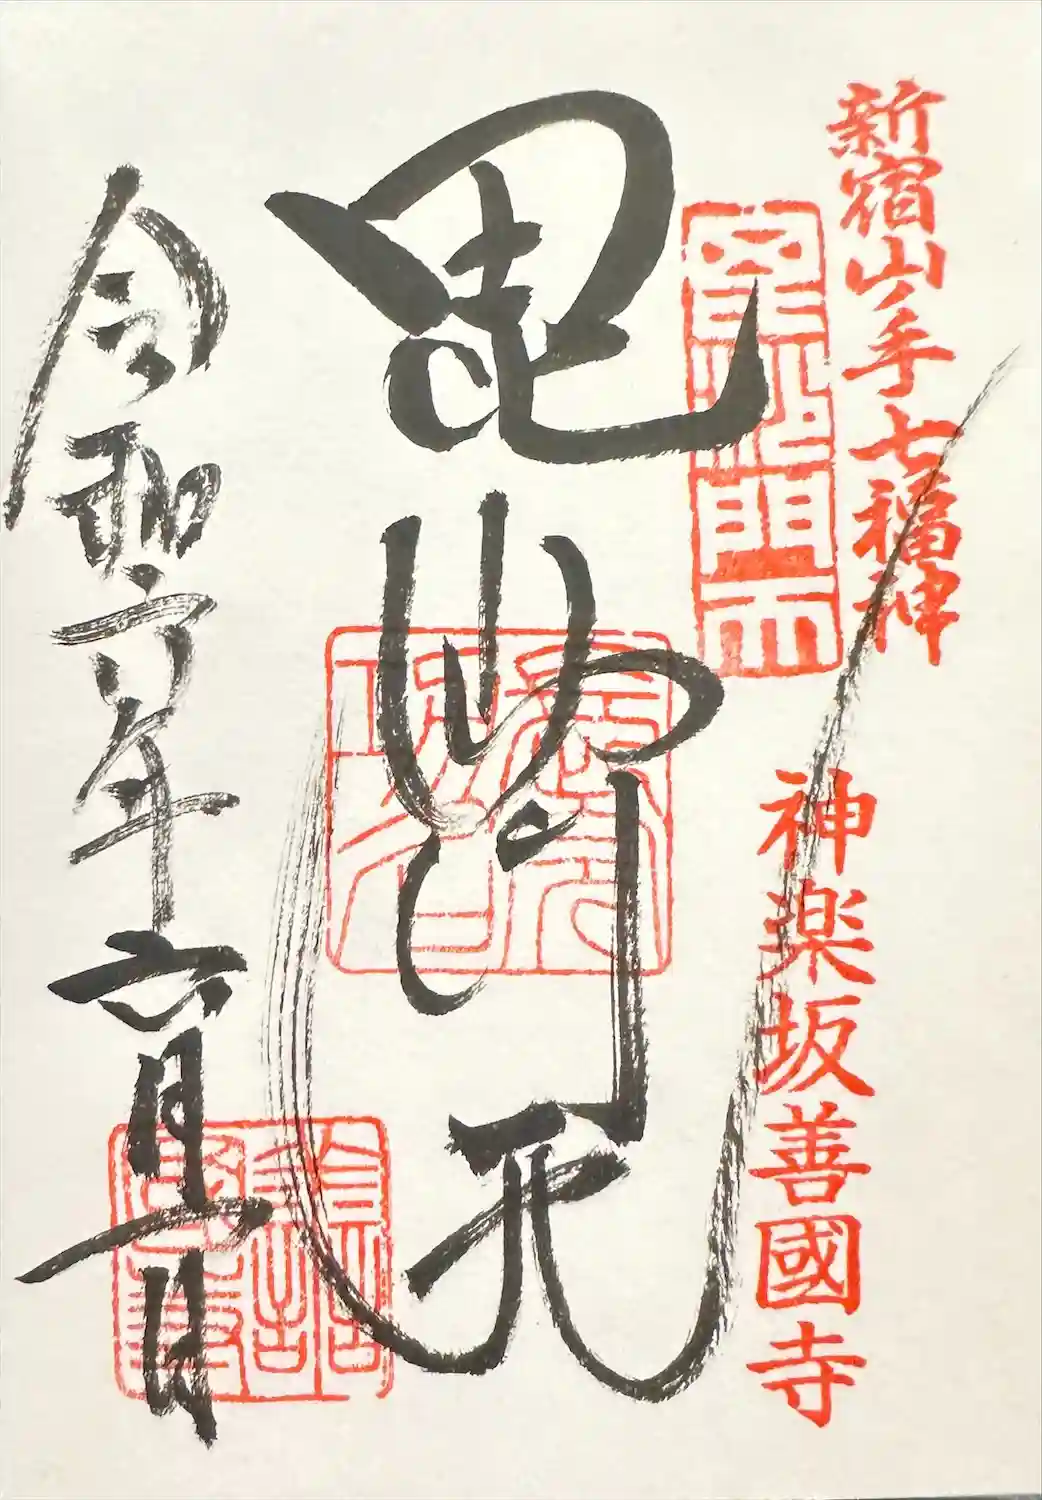 新宿山ノ手七福神
神楽坂善國寺
毘沙門天
令和六年六月一日
善國寺